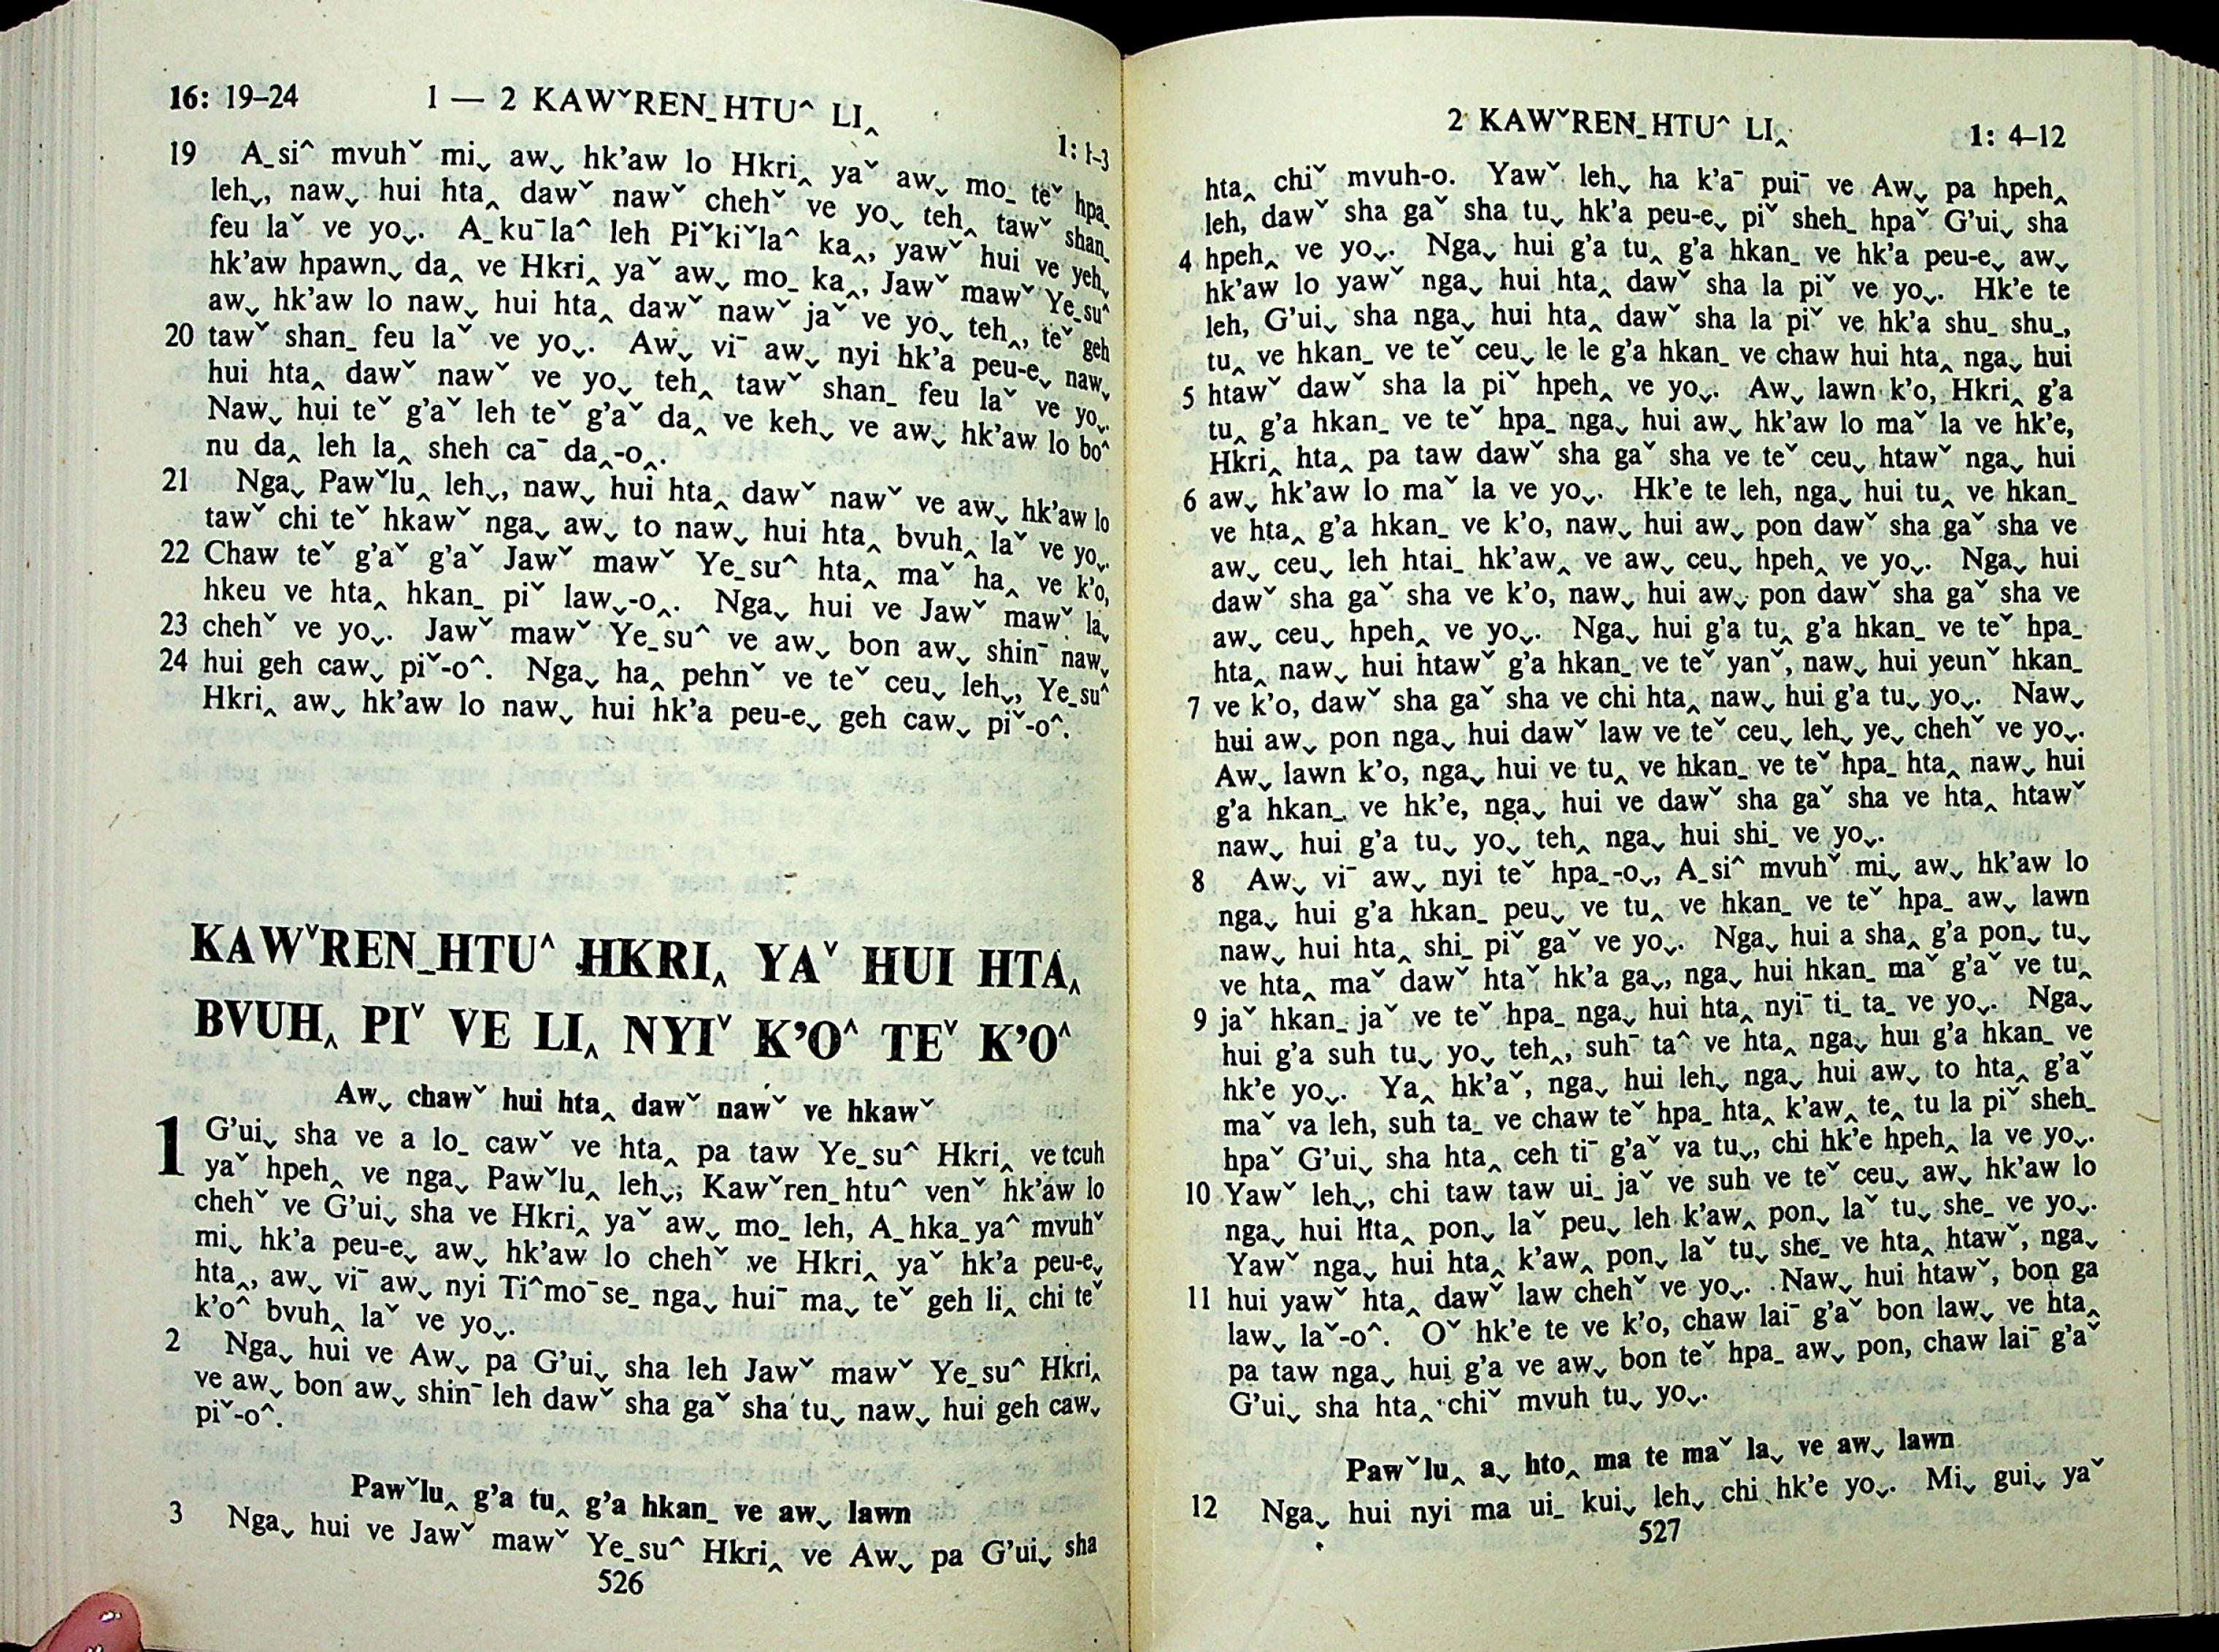 16: 19–24 1 — 2 KAWˇREN_HTU^ LI‸ 1: 1–3
19 A_si^ mvuhˇ miˬ awˬ hk'aw lo Hkri‸ yaˇ awˬ mo_ teˇ hpa_
lehˬ, nawˬ hui hta‸ dawˇ nawˇ chehˇ ve yoˬ teh‸ tawˇ shan_
feu laˇ ve yoˬ. A_kuˉla^ leh Piˇkiˇla^ ka‸, yawˇ hui ve yehˬ
hk'aw hpawnˬ da‸ ve Hkri‸ yaˇ awˬ mo_ ka‸, Jawˇ mawˇ Ye_su^
awˬ hk'aw lo nawˬ hui hta‸ dawˇ nawˇ jaˇ ve yoˬ teh‸, teˇ geh
20 tawˇ shan_ feu laˇ ve yoˬ. Awˬ viˉ awˬ nyi hk'a peu-eˬ nawˬ
hui hta‸ dawˇ nawˇ ve yoˬ teh‸ tawˇ shan_ feu laˇ ve yoˬ.
Nawˬ hui teˇ g'aˇ leh teˇ g'aˇ da‸ ve kehˬ ve awˬ hk'aw lo bo^
nu da‸ leh la‸ sheh caˉ da‸-o‸.
21 Ngaˬ Pawˇlu‸ lehˬ, nawˬ hui hta‸ dawˇ nawˇ ve awˬ hk'aw lo
tawˇ chi teˇ hkawˇ ngaˬ awˬ to nawˬ hui hta‸ bvuh‸ laˇ ve yoˬ.
22 Chaw teˇ g'aˇ g'aˇ Jawˇ mawˇ Ye_su^ hta‸ maˇ ha‸ ve k'o,
hkeu ve hta‸ hkan_ piˇ lawˬ-o‸. Ngaˬ hui ve Jawˇ mawˇ laˬ
23 chehˇ ve yoˬ. Jawˇ mawˇ Ye_su^ ve awˬ bon awˬ shinˉ nawˬ
24 hui geh cawˬ piˇ-o^. Ngaˬ ha‸ pehnˇ ve teˇ ceuˬ lehˬ, Ye_su^
Hkri‸ awˬ hk'aw lo nawˬ hui hk'a peu-eˬ geh cawˬ piˇ-o^.
KAWˇREN_HTU^ HKRI‸ YAˇ HUI HTA‸
BVUH‸ PIˇ VE LI‸ NYIˇ K'O^ TEˇ K'O^
Awˬ chawˇ hui hta‸ dawˇ nawˇ ve hkawˇ
1 G'uiˬ sha ve a lo_ cawˇ ve hta‸ pa taw Ye_su^ Hkri‸ ve tcuh
yaˇ hpeh‸ ve ngaˬ Pawˇlu‸ lehˬ; Kawˇren_htu^ venˇ hk'aw lo
chehˇ ve G'uiˬ sha ve Hkri‸ yaˇ awˬ mo_ leh, A_hka_ya^ mvuhˇ
miˬ hk'a peu-eˬ awˬ hk'aw lo chehˇ ve Hkri‸ yaˇ hk'a peu-eˬ
hta‸, awˬ viˉ awˬ nyi Ti^moˉse_ ngaˬ huiˉ maˬ teˇ geh li‸ chi teˇ
k'o^ bvuh‸ laˇ ve yoˬ.
2 Ngaˬ hui ve Awˬ pa G'uiˬ sha leh Jawˇ mawˇ Ye_su^ Hkri‸
ve awˬ bon awˬ shinˉ leh dawˇ sha gaˇ sha tuˬ nawˬ hui geh cawˬ
piˇ-o^.
Pawˇlu‸ g'a tu‸ g'a hkan_ ve awˬ lawn
3 Ngaˬ hui ve Jawˇ mawˇ Ye_su^ Hkri‸ ve Awˬ pa G'uiˬ sha
526
2 KAWˇREN_HTU^ LI‸ 1: 4–12
hta‸ chiˇ mvuh-o. Yawˇ lehˬ ha k'aˉ puiˉ ve Awˬ pa hpeh‸
leh, dawˇ sha gaˇ sha tuˬ hk'a peu-eˬ piˇ sheh_ hpaˇ G'uiˬ sha
4 hpeh‸ ve yoˬ. Ngaˬ hui g'a tu‸ g'a hkan_ ve hk'a peu-eˬ awˬ
hk'aw lo yawˇ ngaˬ hui hta‸ dawˇ sha la piˇ ve yoˬ. Hk'e te
leh, G'uiˬ sha ngaˬ hui hta‸ dawˇ sha la piˇ ve hk'a shu_ shu_,
tu‸ ve hkan_ ve teˇ ceuˬ le le g'a hkan_ ve chaw hui hta‸ ngaˬ hui
5 htawˇ dawˇ sha la piˇ hpeh‸ ve yoˬ. Awˬ lawn k'o, Hkri‸ g'a
tu‸ g'a hkan_ ve teˇ hpa_ ngaˬ hui awˬ hk'aw lo maˇ la ve hk'e,
Hkri‸ hta‸ pa taw dawˇ sha gaˇ sha ve teˇ ceuˬ htawˇ ngaˬ hui
6 awˬ hk'aw lo maˇ la ve yoˬ. Hk'e te leh, ngaˬ hui tu‸ ve hkan_
ve hta‸ g'a hkan_ ve k'o, nawˬ hui awˬ pon dawˇ sha gaˇ sha ve
awˬ ceuˬ leh htai_ hk'aw‸ ve awˬ ceuˬ hpeh‸ ve yoˬ. Ngaˬ hui
dawˇ sha gaˇ sha ve k'o, nawˬ hui awˬ pon dawˇ sha gaˇ sha ve
awˬ ceuˬ hpeh‸ ve yoˬ. Ngaˬ hui g'a tu‸ g'a hkan_ ve teˇ hpa_
hta‸ nawˬ hui htawˇ g'a hkan_ ve teˇ yanˇ, nawˬ hui yeunˇ hkan_
7 ve k'o, dawˇ sha gaˇ sha ve chi hta‸ nawˬ hui g'a tuˬ yoˬ. Nawˬ
hui awˬ pon ngaˬ hui dawˇ law ve teˇ ceuˬ lehˬ yeˬ chehˇ ve yoˬ.
Awˬ lawn k'o, ngaˬ hui ve tu‸ ve hkan_ ve teˇ hpa_ hta‸ nawˬ hui
g'a hkan_ ve hk'e, ngaˬ hui ve dawˇ sha gaˇ sha ve hta‸ htawˇ
nawˬ hui g'a tuˬ yoˬ teh‸ ngaˬ hui shi_ ve yoˬ.
8 Awˬ viˉ awˬ nyi teˇ hpa_-oˬ, A_si^ mvuhˇ miˬ awˬ hk'aw lo
ngaˬ hui g'a hkan_ peuˬ ve tu‸ ve hkan_ ve teˇ hpa_ awˬ lawn
nawˬ hui hta‸ shi_ piˇ gaˇ ve yoˬ. Ngaˬ hui a sha‸ g'a ponˬ tuˬ
ve hta‸ maˇ dawˇ htaˇ hk'a gaˬ, ngaˬ hui hkan_ maˇ g'aˇ ve tu‸
9 jaˇ hkan_ jaˇ ve teˇ hpa_ ngaˬ hui hta‸ nyiˉ ti_ ta_ ve yoˬ. Ngaˬ
hui g'a suh tuˬ yoˬ teh‸, suhˉ ta^ ve hta‸ ngaˬ hui g'a hkan_ ve
hk'e yoˬ. Ya‸ hk'aˇ, ngaˬ hui lehˬ ngaˬ hui awˬ to hta‸ g'aˇ
maˇ va leh, suh ta_ ve chaw teˇ hpa_ hta‸ k'aw‸ te‸ tu la piˇ sheh_
hpaˇ G'uiˬ sha hta‸ ceh tiˉ g'aˇ va tuˬ, chi hk'e hpeh‸ la ve yoˬ.
10 Yawˇ lehˬ, chi taw taw ui_ jaˇ ve suh ve teˇ ceuˬ awˬ hk'aw lo
ngaˬ hui hta‸ ponˬ laˇ peuˬ leh k'aw‸ ponˬ laˇ tuˬ she_ ve yoˬ.
Yawˇ ngaˬ hui hta‸ k'aw‸ ponˬ laˇ tuˬ she_ ve hta‸ htawˇ, ngaˬ
11 hui yawˇ hta‸ dawˇ law chehˇ ve yoˬ. Nawˬ hui htawˇ, bon ga
lawˬ laˇ-o^. Oˇ hk'e te ve k'o, chaw laiˉ g'aˇ bon lawˬ ve hta‸
pa taw ngaˬ hui g'a ve awˬ bon teˇ hpa_ awˬ pon, chaw laiˉ g'aˇ
G'uiˬ sha hta‸ chiˇ mvuh tuˬ yoˬ.
Pawˇlu‸ aˬ hto‸ ma te maˇ laˬ ve awˬ lawn
12 Ngaˬ hui nyi ma ui_ kuiˬ lehˬ chi hk'e yoˬ. Miˬ guiˬ yaˇ
527